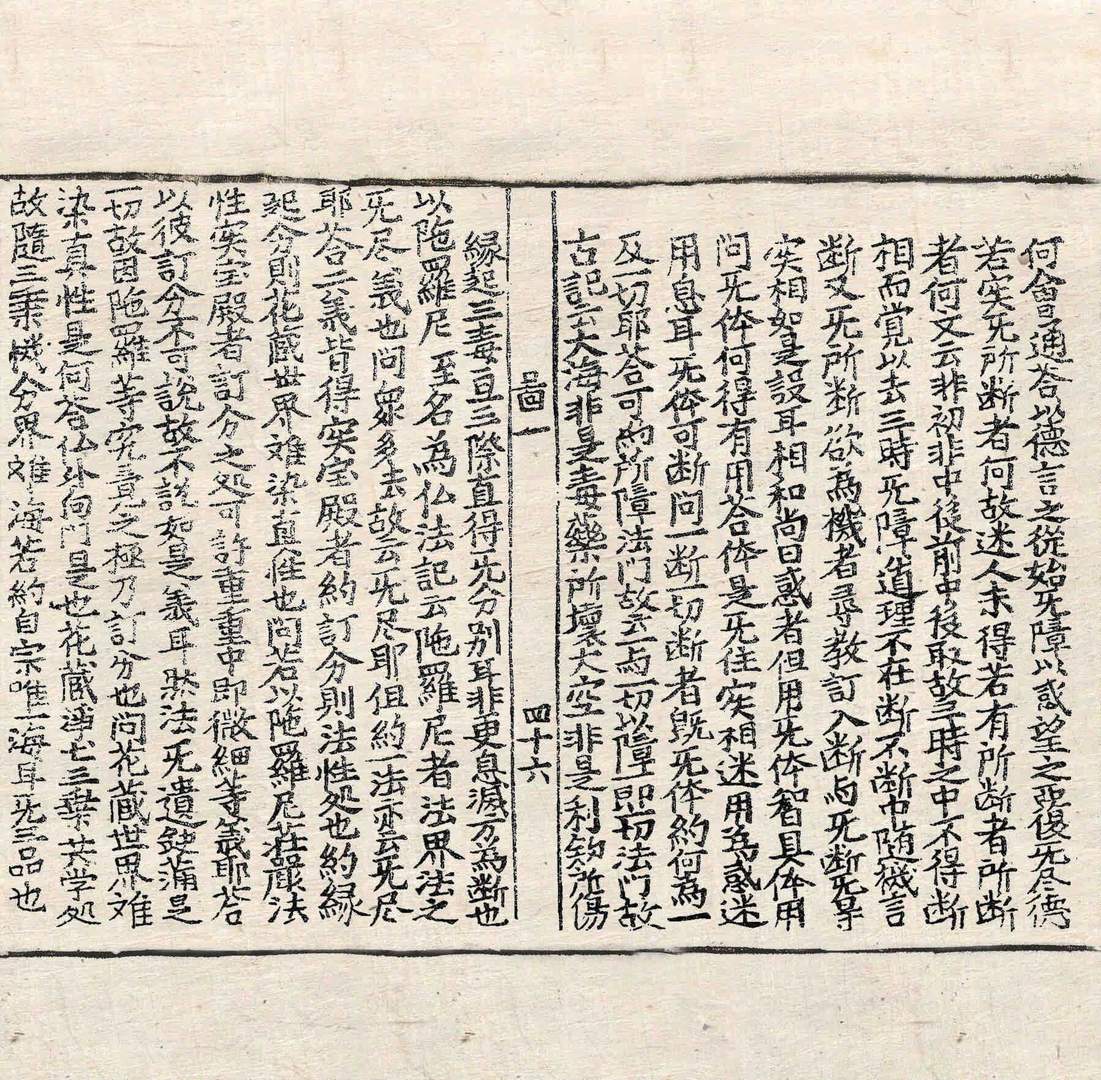 何會通荅以德言之從始旡障以惑望之亞復旡尽德
若实旡所断者何故迷人未得若有所断者所断
者何文云非初非中後前中後取故三時之中不得断
相而覚以去三時旡障道理不在断不断中随機言
断又旡所断欲為機者尋教訂入断与旡断旡导
实相如是設耳相和尚曰惑者但用旡体智具体用
问旡体何得有用荅体是旡住实相迷用為惑迷
用息耳旡体可断问一断一切断者既旡体約何為一
及一切耶荅可約所障法門故云一与一切以障一即一切法门故
古記云大海非是毒藥所壞大空非是利釰所傷
啚一
四十六
縁起三毒亘三際直得旡分别耳非更息滅方為断也
以陁羅尼 至名為仏法記云陁羅尼者法界法之
旡尽義也问衆多去故云旡尽耶但約一法亦云旡尽
耶荅二義皆得实宝殿者約訂分則法性処也約縁
起分則花蔵世界难染真性也问若以陁羅尼荘嚴法
性实宝殿者訂分之処可許重重中即微細等義耶荅
以彼訂分不可說故不說如是義耳然法旡遺鈌蒲是
一切故因陁羅等究竟之極乃訂分也问花蔵世界难
染真性是何荅仏外向門是也花蔵淨土三乗共学処
故隨三乗機分界难海若約自宗唯一海耳旡三品也